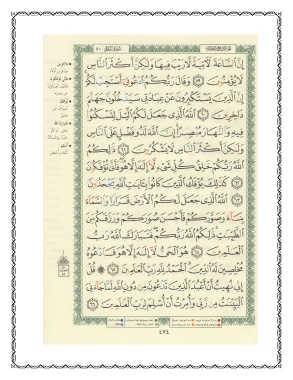 إِنَّ السَّاعَةَ لَآتِيَةٌ لَّا رَيْبَ فِيهَا وَلَٰكِنَّ أَكْثَرَ النَّاسِ
لَا يُؤْمِنُونَ ٥٩ وَقَالَ رَبُّكُمُ ادْعُونِي أَسْتَجِبْ لَكُمْ
إِنَّ الَّذِينَ يَسْتَكْبِرُونَ عَنْ عِبَادَتِي سَيَدْخُلُونَ جَهَنَّمَ
دَاخِرِينَ ٦٠ اللَّهُ الَّذِي جَعَلَ لَكُمُ اللَّيْلَ لِتَسْكُنُوا
فِيهِ وَالنَّهَارَ مُبْصِرًا إِنَّ اللَّهَ لَذُو فَضْلٍ عَلَى النَّاسِ
وَلَٰكِنَّ أَكْثَرَ النَّاسِ لَا يَشْكُرُونَ ٦١ ذَٰلِكُمُ
اللَّهُ رَبُّكُمْ خَالِقُ كُلِّ شَيْءٍ لَّا إِلَٰهَ إِلَّا هُوَ فَأَنَّىٰ تُؤْفَكُونَ
٦٢ كَذَٰلِكَ يُؤْفَكُ الَّذِينَ كَانُوا بِآيَاتِ اللَّهِ يَجْحَدُونَ
٦٣ اللَّهُ الَّذِي جَعَلَ لَكُمُ الْأَرْضَ قَرَارًا وَالسَّمَاءَ
بِنَاءً وَصَوَّرَكُمْ فَأَحْسَنَ صُوَرَكُمْ وَرَزَقَكُم مِّنَ
الطَّيِّبَاتِ ذَٰلِكُمُ اللَّهُ رَبُّكُمْ فَتَبَارَكَ اللَّهُ رَبُّ
الْعَالَمِينَ ٦٤ هُوَ الْحَيُّ لَا إِلَٰهَ إِلَّا هُوَ فَادْعُوهُ
مُخْلِصِينَ لَهُ الدِّينَ الْحَمْدُ لِلَّهِ رَبِّ الْعَالَمِينَ ٦٥ قُلْ
إِنِّي نُهِيتُ أَنْ أَعْبُدَ الَّذِينَ تَدْعُونَ مِن دُونِ اللَّهِ لَمَّا جَاءَنِيَ
الْبَيِّنَاتُ مِن رَّبِّي وَأُمِرْتُ أَنْ أُسْلِمَ لِرَبِّ الْعَالَمِينَ ٦٦
٤٧٤